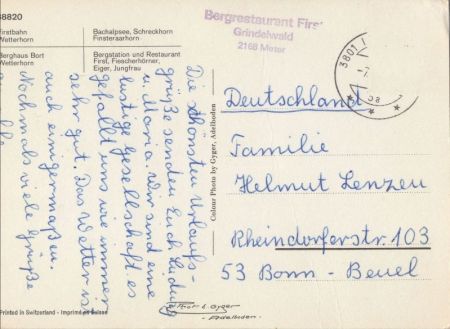 38820
Firstbahn
Wetterhorn
Bachalpsee, Schreckhorn
Finsteraarhorn
Berghaus Bort
Wetterhorn
Bergstation und Restaurant
First, Fiescherhörner,
Eiger, Jungfrau
Bergrestaurant First
Grindelwald
2168 Meter
3801
Die schönsten Urlaubs-
grüße senden Euch Ludwig
u. Maria. Wir sind eine
lustige Gesellschaft es
gefällt uns wie immer
sehr gut. Das Wetter ist
auch einigermaßen.
Nochmals viele Grüße
Colour Photo by Gyger, Adelboden
Deutschland
Familie
Helmut Lenzen
Rheindorferstr. 103
53 Bonn-Beuel
Printed in Switzerland - Imprimé en Suisse
Gyger
Adelboden